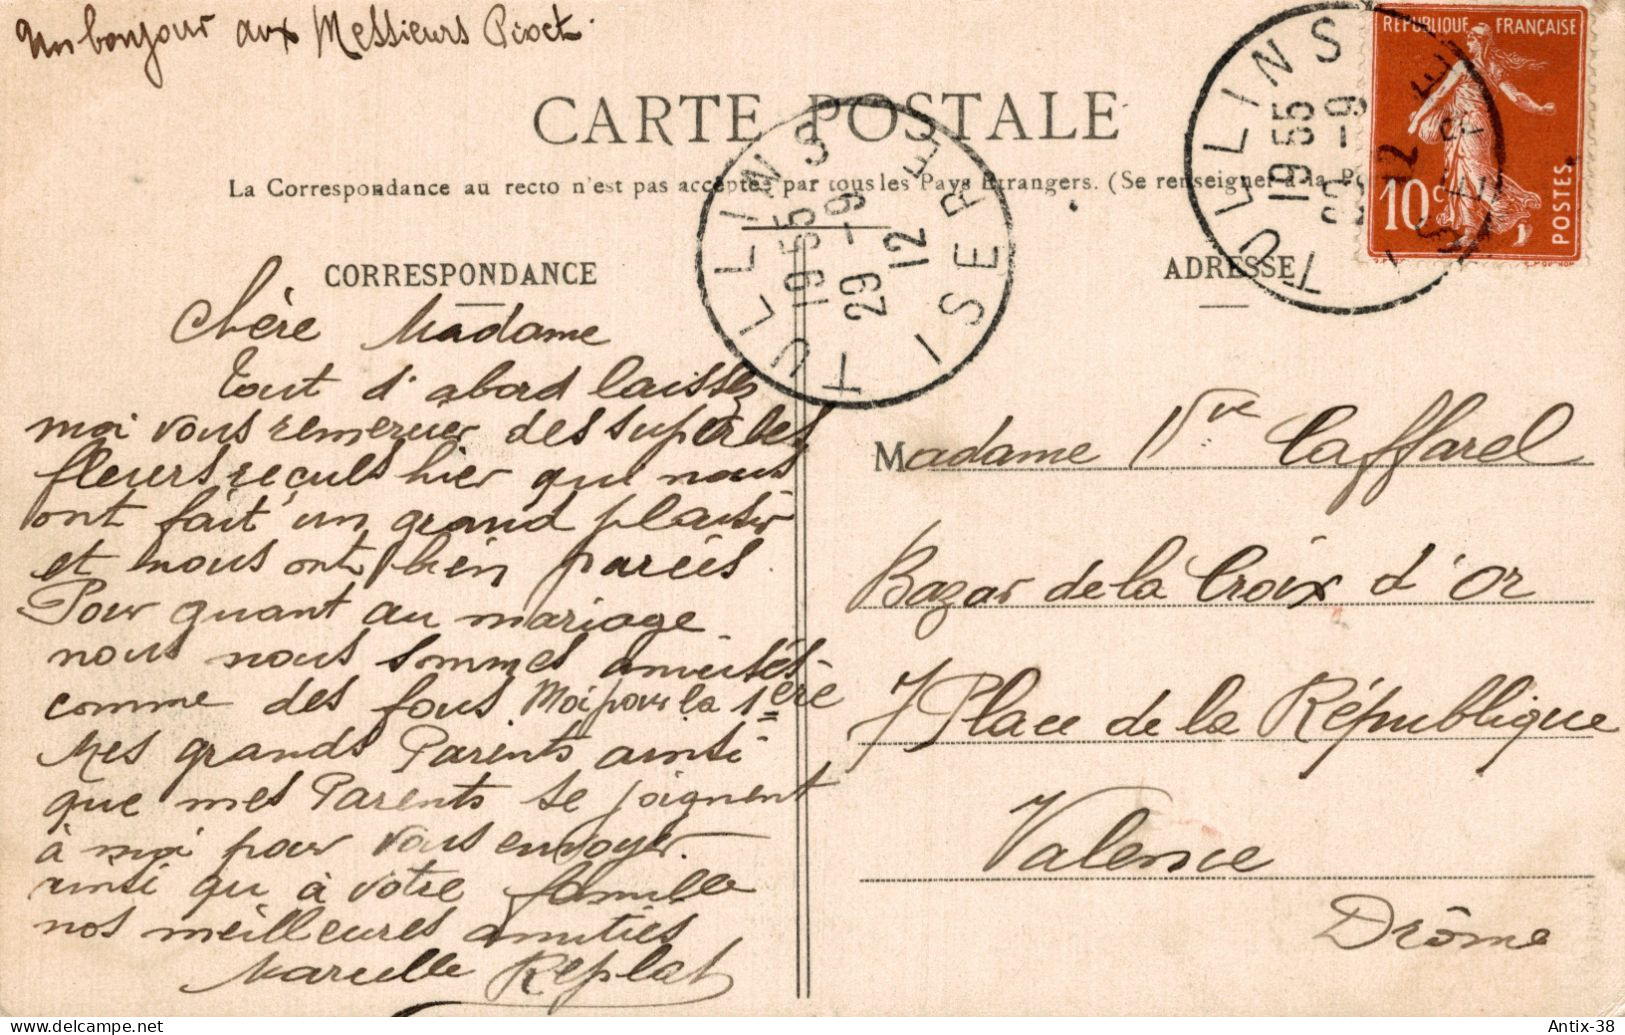 Un bonjour aux Messieurs
CARTE POSTALE
La Correspondance au recto n'est pas acceptée par tous les Pays Etrangers. (Se renseigner à la
CORRESPONDANCE
Chère Madame
Tout d'abord laissez
moi vous remercier des superbes
fleurs reçues hier que nous
ont fait un grand plaisir
et nous ont bien parées.
Pour quant au mariage
nous nous sommes amusés
comme des fous. Moi pour la 1ère
Mes grands Parents ainsi
que mes Parents se joignent
à moi pour vous envoyer
ainsi qu'à votre famille
nos meilleures amitiés
Marcelle Replat
TULLINS
1955
29-9
12
ISERE
ADRESSE
Madame Vve Caffarel
Bazar de la Croix d'Or
7 Place de la République
Valence
Drôme
TULLINS
1955
29-9
12
ISERE
REPUBLIQUE FRANÇAISE
10c
POSTES.
delcampe.net
Antix-38